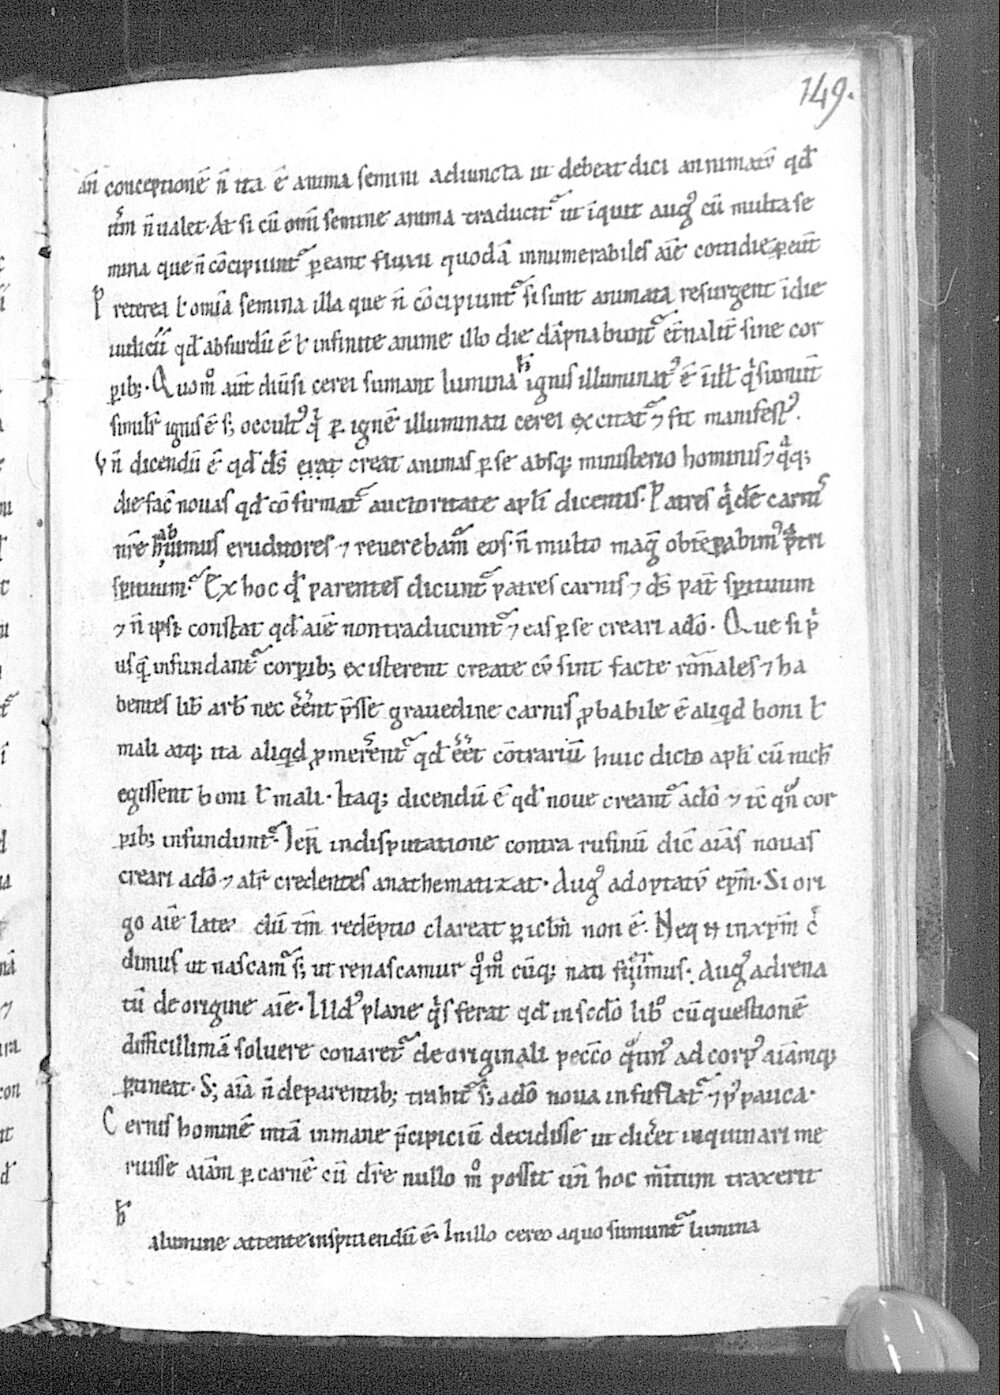 149.
an̄ conceptionē n̄ ita ē anima semini adiuncta ut debeat dici an nimatū qđ
n̄ ualet. At si cū om̄i semine anima traducit᷑ ut īquit aug᷒ cū multa se
mina que n̄ cōcipiunt᷑ ꝑeant fluxu quodā innumerabiles aīe cottidie ꝑeūt
P reterea ł omīa semina illa que n̄ cōcipiunt᷑ si sunt animata resurgent ī die
iudicii qđ absurdū ē ł infinite anime illo die dāpnabunt᷑ et̄nalit̄ sine cor
ꝑib; . Quom̊ aut̄ diūsi cerei sumant lumina ignis illuminat᷒ ē
ignis ē s; occult᷒ ꝑ ignē illuminati cerei excitat᷑ ⁊ fit manifest᷒.
V n̄ dicendū ē qđ ds̄ erat creat animas ꝑ se absq; ministerio hominis ⁊
die fac̄ nouas qđ cōfirmat᷑ auctoritate apłi dicentis. Patres carnis
nr̄e eruditores ⁊ reuerebam᷑ eos. n̄ multo mag̅ obtēꝑabim᷒ pat̄ri
spirituum. Ex hoc qđ parentes dicunt᷑ patres carnis ⁊ ds̄ pat̄ spirituum
⁊ n̄ ipsi constat qđ aīe non traducunt᷑ ⁊ eas ꝑ se creari a dō. Que si p
usq̄ infundant᷑ corꝑib; existerent create cū sint facte rōnales ⁊ ha
bentes lib̄ arb̄ nec eēnt p̄sse grauedine carnis ꝓbabile ē aliqđ boni ł
mali atq; ita aliqđ ꝓmerēnt᷑ qđ eēt cōtrariū huic dicto apłi cū nich̄
egissent boni ł mali. Itaq; dicendū ē qđ noue creant᷑ a dō ⁊ tc̄ qn̄ cor
ꝑib; infundunt᷑. Ieř in disputatione contra rufinū dic̄ aīas nouas
creari a dō ⁊ alit̄ credentes anathematizat. Aug᷒ ad optatū ep̄m. Si ori
go aīe lateat dū tm̄ redēptio clareat ꝑiclm̄ non ē. Neq; ƕ in xp̄m c̄
dimus ut nascam᷑ s; ut renascamur quom̊ cūq; nati fuim̄us. Aug᷒ ad rena
tū de origine aīe. Illud plane qs ferat qđ in scdō libº cū questionē
difficillimā soluere conaret᷑ de originali pecc̄o ad corp᷒ aīamq;
ꝑtineat. S; aīa n̄ de parentib; trahit᷑ s; a dō noua insufflat᷑ ⁊ p᷒ pauca.
C ernis hominē intā inmane p̄cipiciū decidisse ut dic̄et inquinari me
ruisse aīam ꝑ carnē cū dr̄e nullo m̊ possit un̄ hoc m̄itum traxerit
ħ
a lumine attente inspiciendū ē. In illo cereo a quo sumunt᷑ lumina